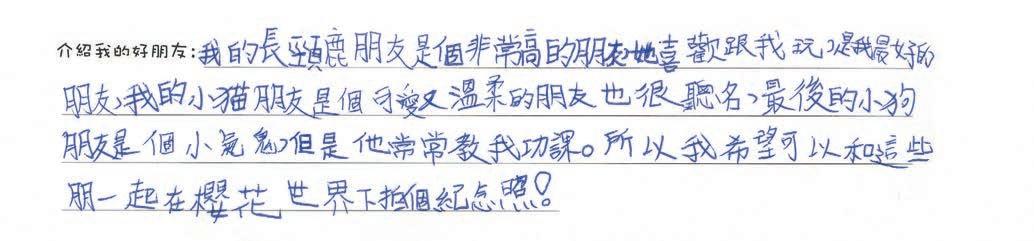 介紹我的好朋友:我的長頸鹿朋友是個非常高的朋友,她喜歡跟我玩,是我最好的
朋友,我的小猫朋友是個可愛又溫柔的朋友也很聽名,最後的小狗
朋友是個小氣鬼,但是他常常教我功課。所以我希望可以和這些
朋一起在櫻花世界下拍個紀念照!